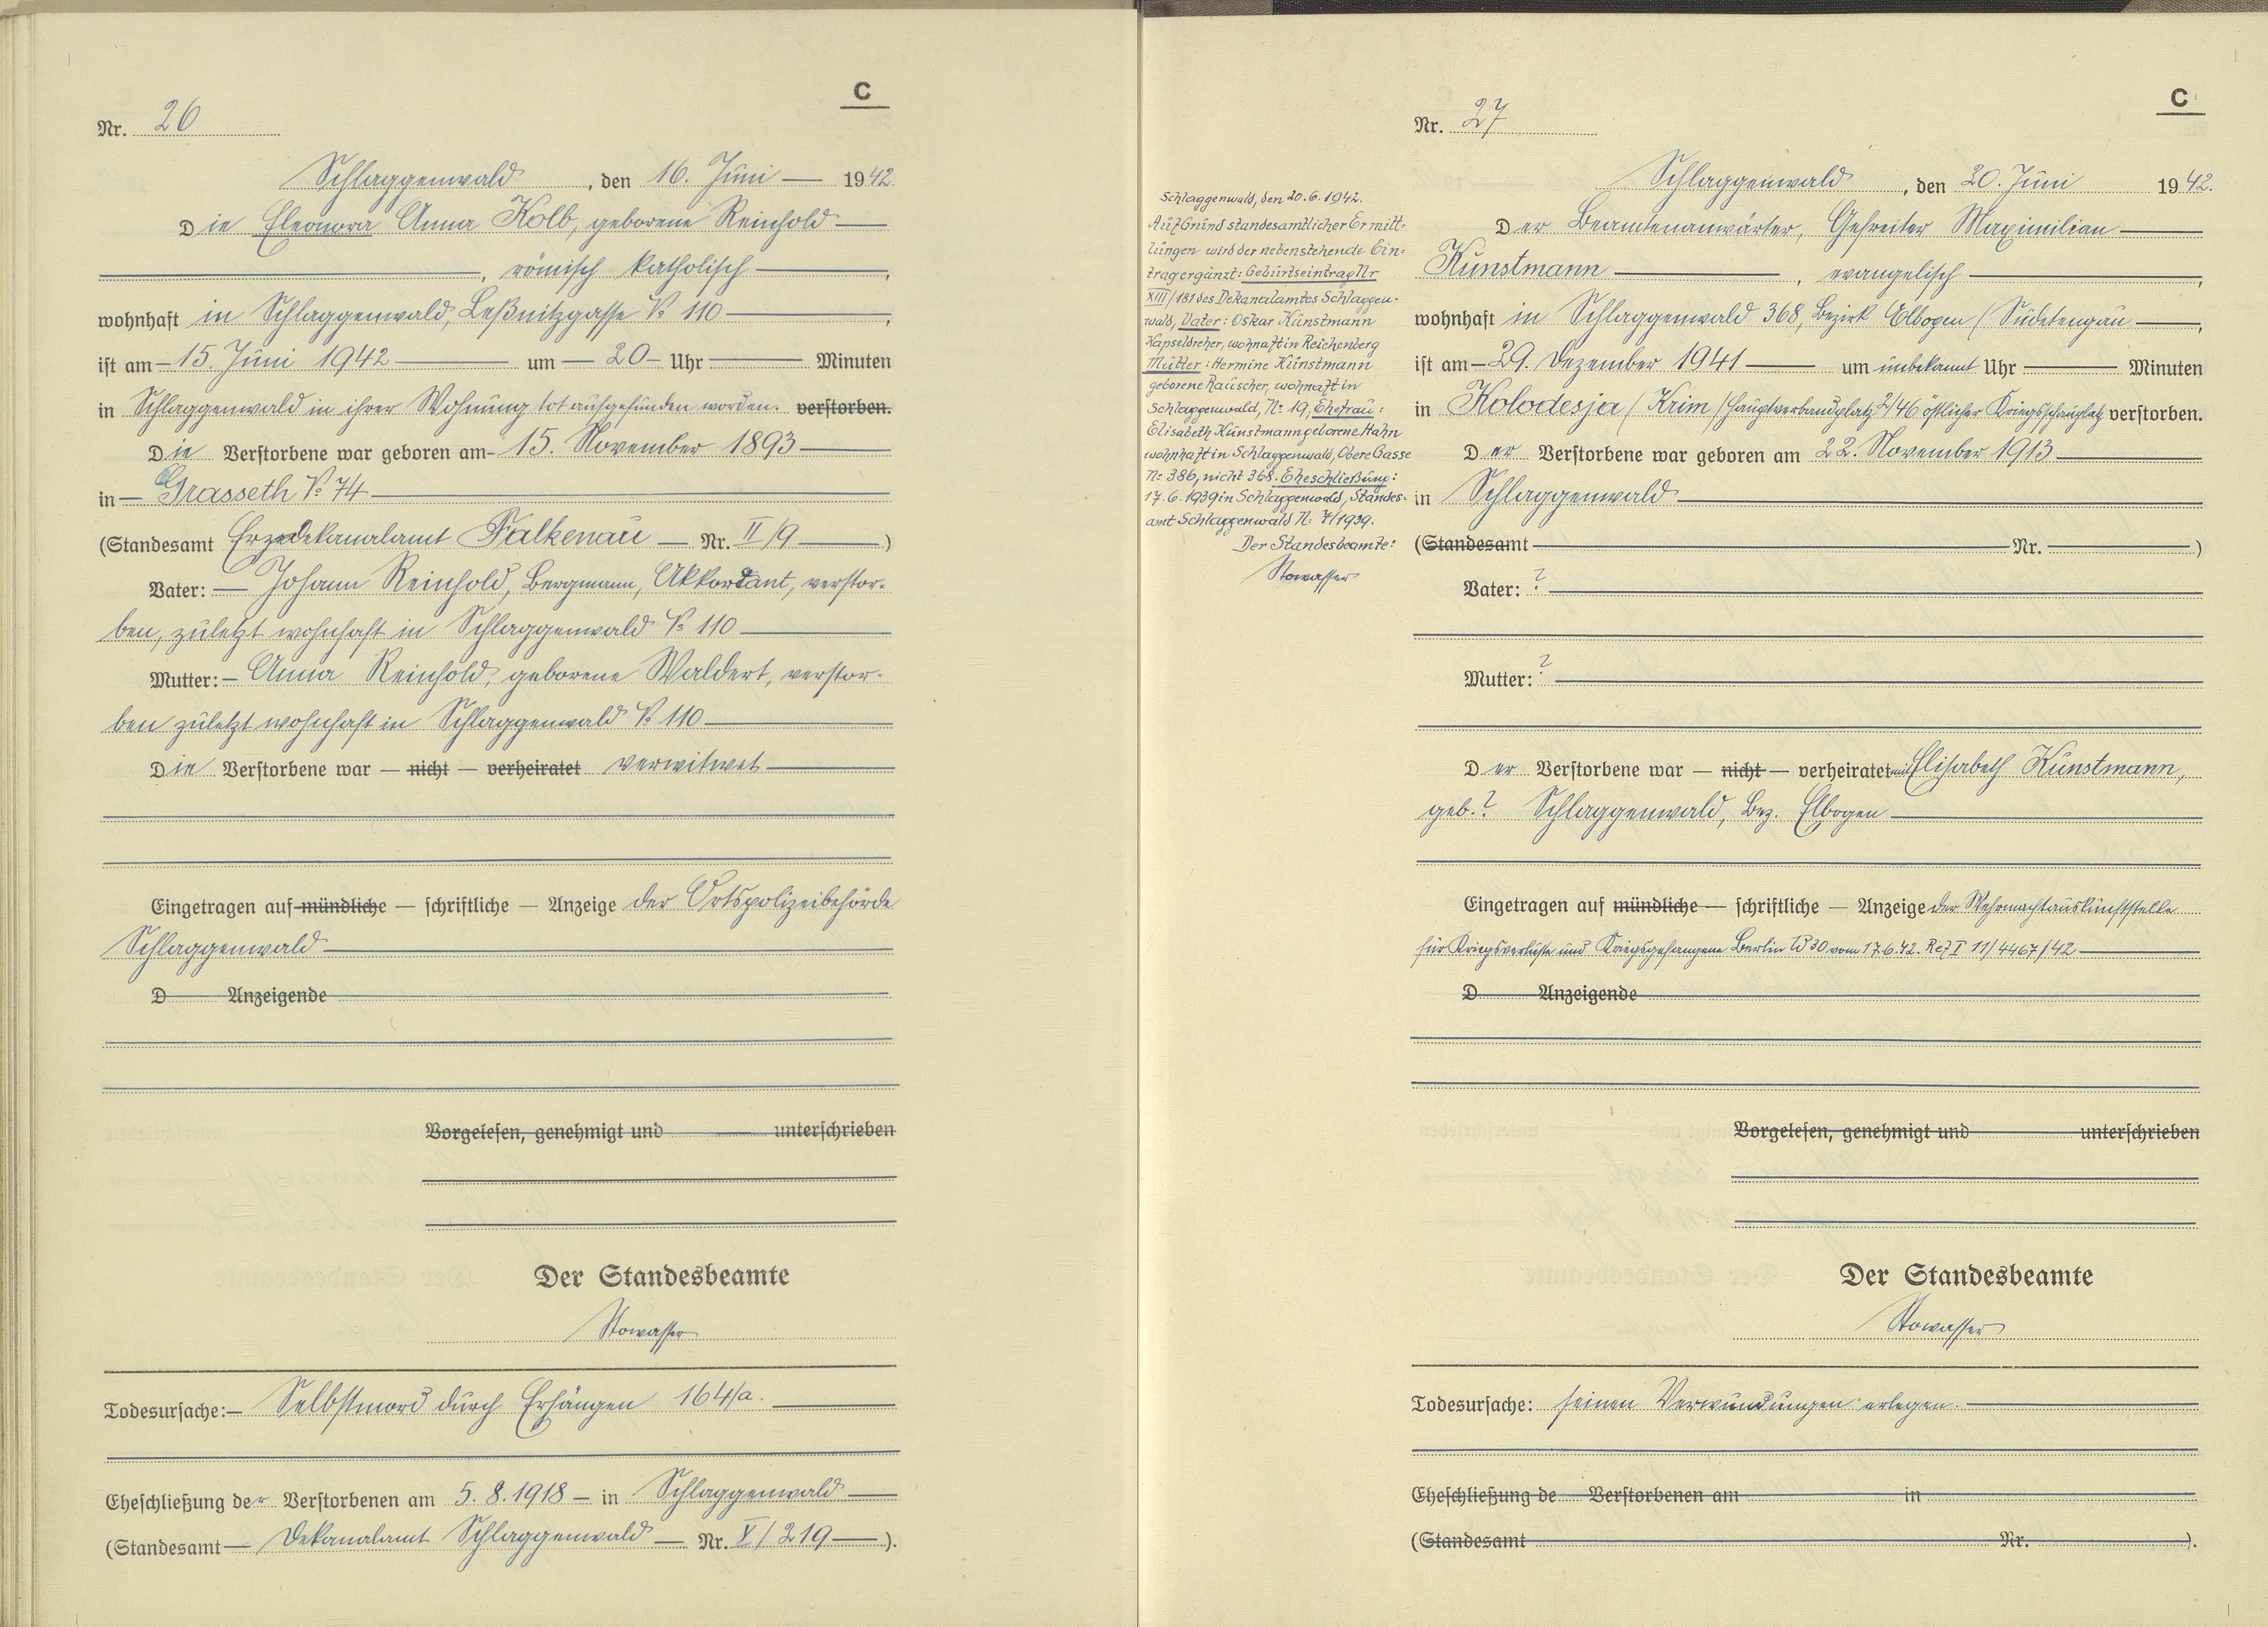 C
Nr. 26
Schlaggenwald, den 16. Juni 1942.
Die Eleonora Anna Kolb, geborene Reinhold
, römisch katholisch ,
wohnhaft in Schlaggenwald, Leßnitzgasse No 110 ,
ist am 15. Juni 1942 um 20 Uhr Minuten
in Schlaggenwald in ihrer Wohnung tot aufgefunden worden. verstorben.
Die Verstorbene war geboren am 15. November 1893
in Grasseth No 74
(Standesamt Erzdekanalamt Falkenau Nr. II/9 )
Vater: Johann Reinhold, Bergmann, Akkordant, verstor-
ben, zuletzt wohnhaft in Schlaggenwald No 110
Mutter: Anna Reinhold, geborene Waldert, verstor-
ben zuletzt wohnhaft in Schlaggenwald No 110
Die Verstorbene war — nicht — verheiratet verwitwet
Eingetragen auf mündliche — schriftliche — Anzeige der Ortspolizeibehörde
Schlaggenwald
D Anzeigende
Vorgelesen, genehmigt und unterschrieben
Der Standesbeamte
Stowasser
Todesursache: Selbstmord durch Erhängen 164/a.
Eheschließung der Verstorbenen am 5. 8. 1918 in Schlaggenwald
(Standesamt Dekanalamt Schlaggenwald Nr. X/219 ).
C
Nr. 27
Schlaggenwald, den 20. Juni 1942.
Der Beamtenanwärter, Gefreiter Maximilian
Kunstmann , evangelisch ,
wohnhaft in Schlaggenwald 368, Bezirk Elbogen / Sudetengau ,
ist am 29. Dezember 1941 um unbekannt Uhr Minuten
in Kolodesja / Krim / Hauptverbandplatz 2/46 östlicher Kriegsschauplatz verstorben.
Der Verstorbene war geboren am 22. November 1913
in Schlaggenwald
(Standesamt Nr. )
Vater: ?
Mutter: ?
Der Verstorbene war — nicht — verheiratet mit Elisabeth Kunstmann,
geb. ? Schlaggenwald, Bez. Elbogen
Eingetragen auf mündliche — schriftliche — Anzeige der Wehrmachtauskunftstelle
für Kriegsverluste und Kriegsgefangene Berlin W 30 vom 17.6.42. Ref I 11/4467/42
D Anzeigende
Vorgelesen, genehmigt und unterschrieben
Der Standesbeamte
Stowasser
Todesursache: seinen Verwundungen erlegen.
Eheschließung de Verstorbenen am in
(Standesamt Nr. ).
Schlaggenwald, den 20. 6. 1942.
Auf Grund standesamtlicher Ermitt-
lungen wird der nebenstehende Ein-
trag ergänzt: Geburtseintrag Nr
XIII/181 des Dekanalamtes Schlaggen-
wald, Vater: Oskar Kunstmann
Kapseldreher, wohnhaft in Reichenberg
Mutter: Hermine Kunstmann
geborene Rauscher, wohnhaft in
Schlaggenwald, No 19, Ehefrau:
Elisabeth Kunstmann geborene Hahn
wohnhaft in Schlaggenwald, Obere Gasse
No 386, nicht 368. Eheschließung:
17. 6. 1939 in Schlaggenwald, Standes-
amt Schlaggenwald No 7/1939.
Der Standesbeamte:
Stowasser